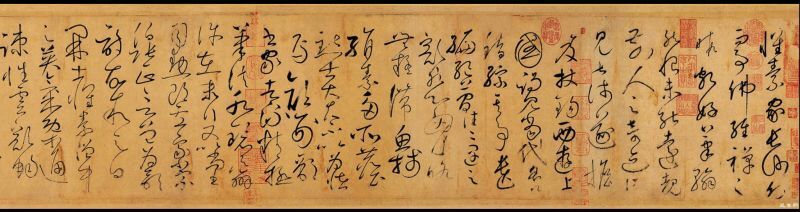 懷素家長沙幼而
事佛經禪之
暇頗好筆翰
然恨未能遠覩
前人之奇迹所
見甚淺遂擔
笈杖錫西遊上
國謁見當代名公
錯綜其事遺
編絕簡往往遇之
豁然心胸略
無疑滯魚牋
絹素多所塵
點士大夫不以為怪
焉顏刑部
書家者流精極
筆法水鏡之辨
許在末行又以尚書
司勳郎盧象小宗
伯張正言曾為歌
詩故敘之曰
開士懷素僧中
之英氣概通
疎性靈豁暢